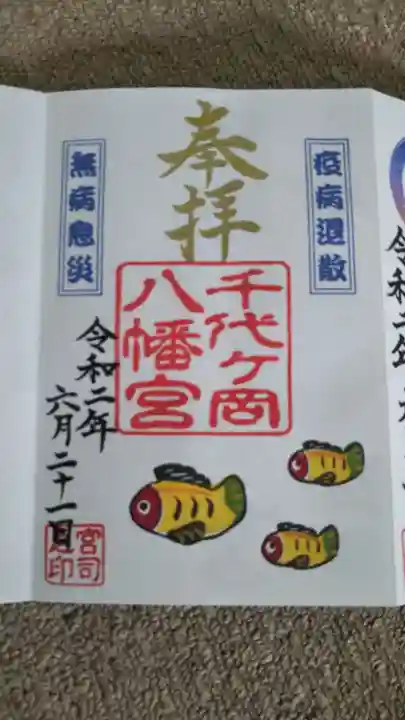 奉拝
疫病退散
無病息災
千代ケ岡
八幡宮
令和二年
六月二十一日
宮司
印
令和二年